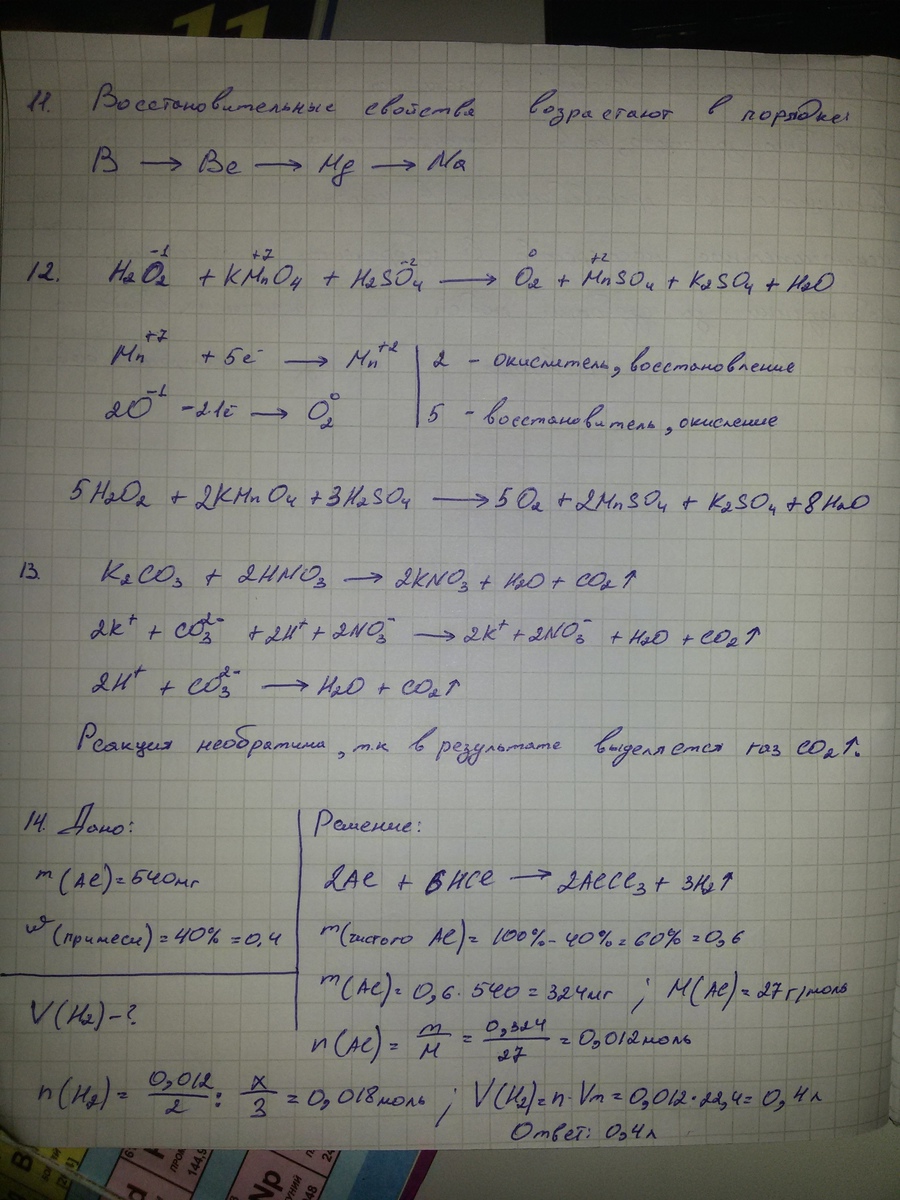 11
11. Восстановительные свойства возрастают в порядке:
B → Be → Mg → Na
12. H₂O₂⁻¹ + KMn⁺⁷O₄ + H₂SO₄⁻² → O₂⁰ + Mn⁺²SO₄ + K₂SO₄ + H₂O
Mn⁺⁷ + 5ē → Mn⁺² | 2 - окислитель, восстановление
2O⁻¹ - 2·1ē → O₂⁰ | 5 - восстановитель, окисление
5H₂O₂ + 2KMnO₄ + 3H₂SO₄ → 5O₂ + 2MnSO₄ + K₂SO₄ + 8H₂O
13. K₂CO₃ + 2HNO₃ → 2KNO₃ + H₂O + CO₂↑
2K⁺ + CO₃²⁻ + 2H⁺ + 2NO₃⁻ → 2K⁺ + 2NO₃⁻ + H₂O + CO₂↑
2H⁺ + CO₃²⁻ → H₂O + CO₂↑
Реакция необратима, т.к в результате выделяется газ CO₂↑.
14. Дано:
m(Al) = 540мг
ω(примеси) = 40% = 0,4
V(H₂) - ?
Решение:
2Al + 6HCl → 2AlCl₃ + 3H₂↑
m(чистого Al) = 100% - 40% = 60% = 0,6
m(Al) = 0,6 · 540 = 324мг ; M(Al) = 27г/моль
n(Al) = m/M = 0,324/27 = 0,012моль
n(H₂) = 0,012/2 : x/3 = 0,018моль ; V(H₂) = n · Vn = 0,012 · 22,4 = 0,4л
Ответ: 0,4л
144,9
Np